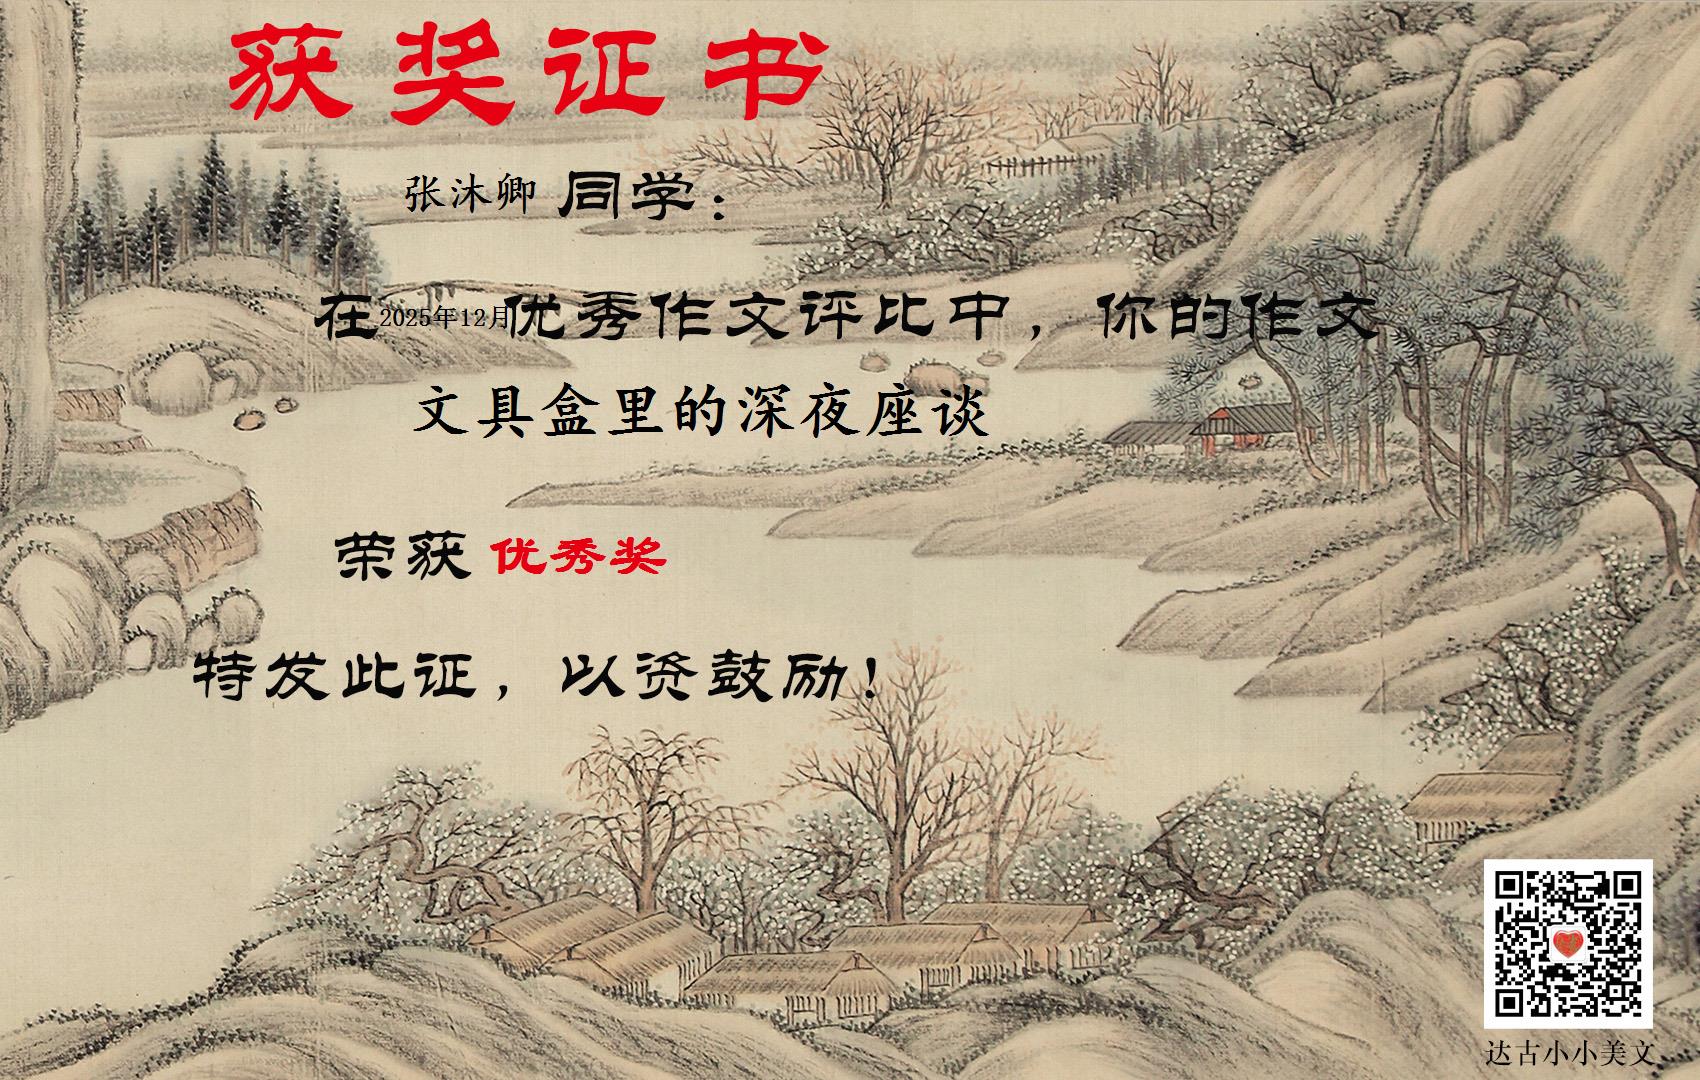 获奖证书
张沐卿 同学：
在2025年12月优秀作文评比中，你的作文
文具盒里的深夜座谈
荣获 优秀奖
特发此证，以资鼓励！
达古小小美文